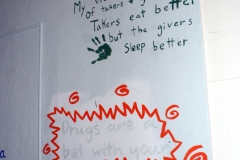 My
of takers & g
Takers eat better
but the givers
Sleep better
Drugs are a
bat with your
a